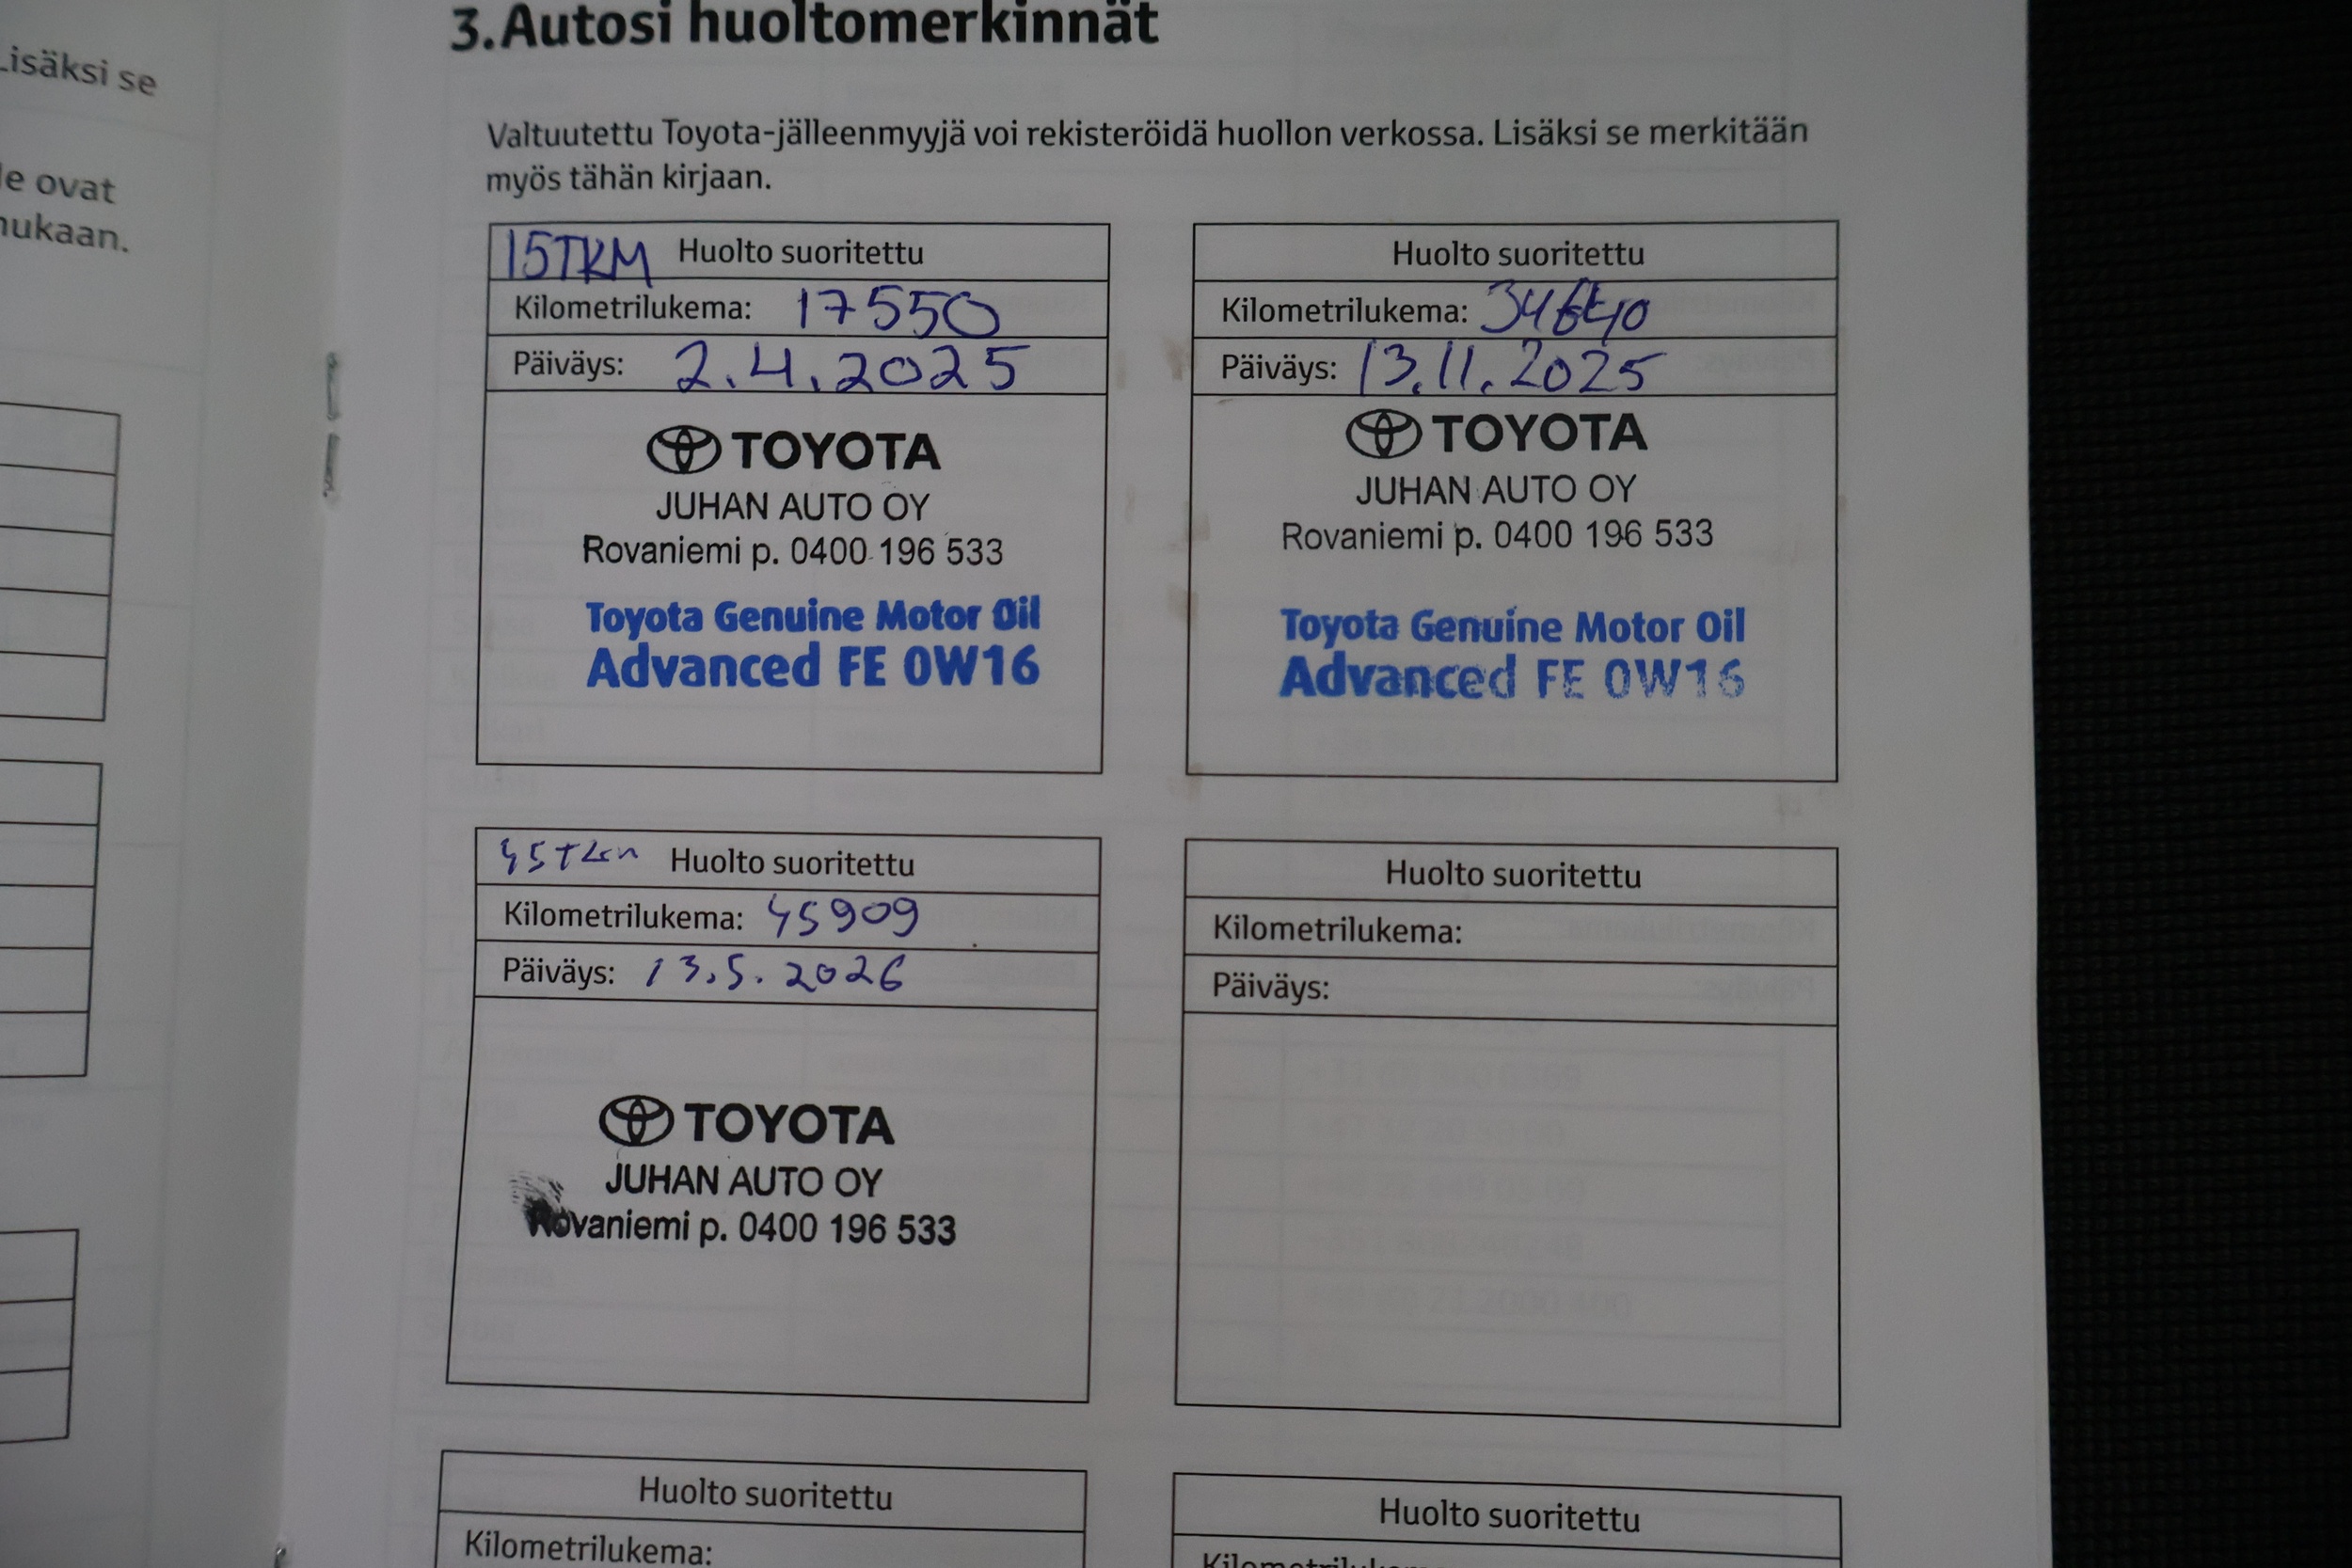 Lisäksi se
le ovat
mukaan.
3. Autosi huoltomerkinnät
Valtuutettu Toyota-jälleenmyyjä voi rekisteröidä huollon verkossa. Lisäksi se merkitään
myös tähän kirjaan.
15TKM Huolto suoritettu
Kilometrilukema: 17550
Päiväys: 2.4.2025
TOYOTA
JUHAN AUTO OY
Rovaniemi p. 0400 196 533
Toyota Genuine Motor Oil
Advanced FE 0W16
Huolto suoritettu
Kilometrilukema:
Päiväys: 13.11.2025
TOYOTA
JUHAN AUTO OY
Rovaniemi p. 0400 196 533
Toyota Genuine Motor Oil
Advanced FE 0W16
45Tkm Huolto suoritettu
Kilometrilukema: 45909
Päiväys: 13.5.2026
TOYOTA
JUHAN AUTO OY
Rovaniemi p. 0400 196 533
Huolto suoritettu
Kilometrilukema:
Päiväys:
Huolto suoritettu
Kilometrilukema:
Huolto suoritettu